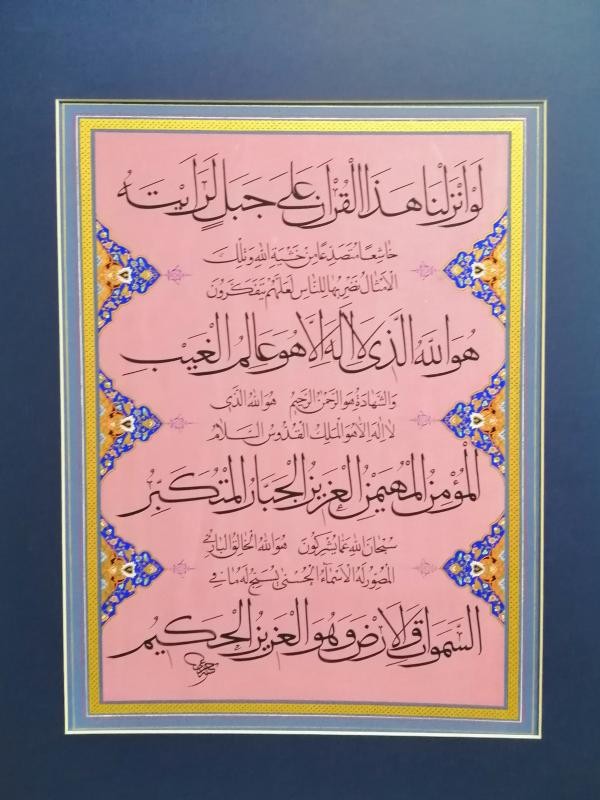 لَوْ أَنْزَلْنَا هَذَا الْقُرْآنَ عَلَى جَبَلٍ لَرَأَيْتَهُ
خَاشِعًا مُتَصَدِّعًا مِنْ خَشْيَةِ اللهِ وَتِلْكَ
الْأَمْثَالُ نَضْرِبُهَا لِلنَّاسِ لَعَلَّهُمْ يَتَفَكَّرُونَ
هُوَ اللهُ الَّذِى لَا إِلَهَ إِلَّا هُوَ عَالِمُ الْغَيْبِ
وَالشَّهَادَةِ هُوَ الرَّحْمَنُ الرَّحِيمُ هُوَ اللهُ الَّذِى
لَا إِلَهَ إِلَّا هُوَ الْمَلِكُ الْقُدُّوسُ السَّلَامُ
الْمُؤْمِنُ الْمُهَيْمِنُ الْعَزِيزُ الْجَبَّارُ الْمُتَكَبِّرُ
سُبْحَانَ اللهِ عَمَّا يُشْرِكُونَ هُوَ اللهُ الْخَالِقُ الْبَارِئُ
الْمُصَوِّرُ لَهُ الْأَسْمَاءُ الْحُسْنَى يُسَبِّحُ لَهُ مَا فِي
السَّمَوَاتِ وَالْأَرْضِ وَهُوَ الْعَزِيزُ الْحَكِيمُ